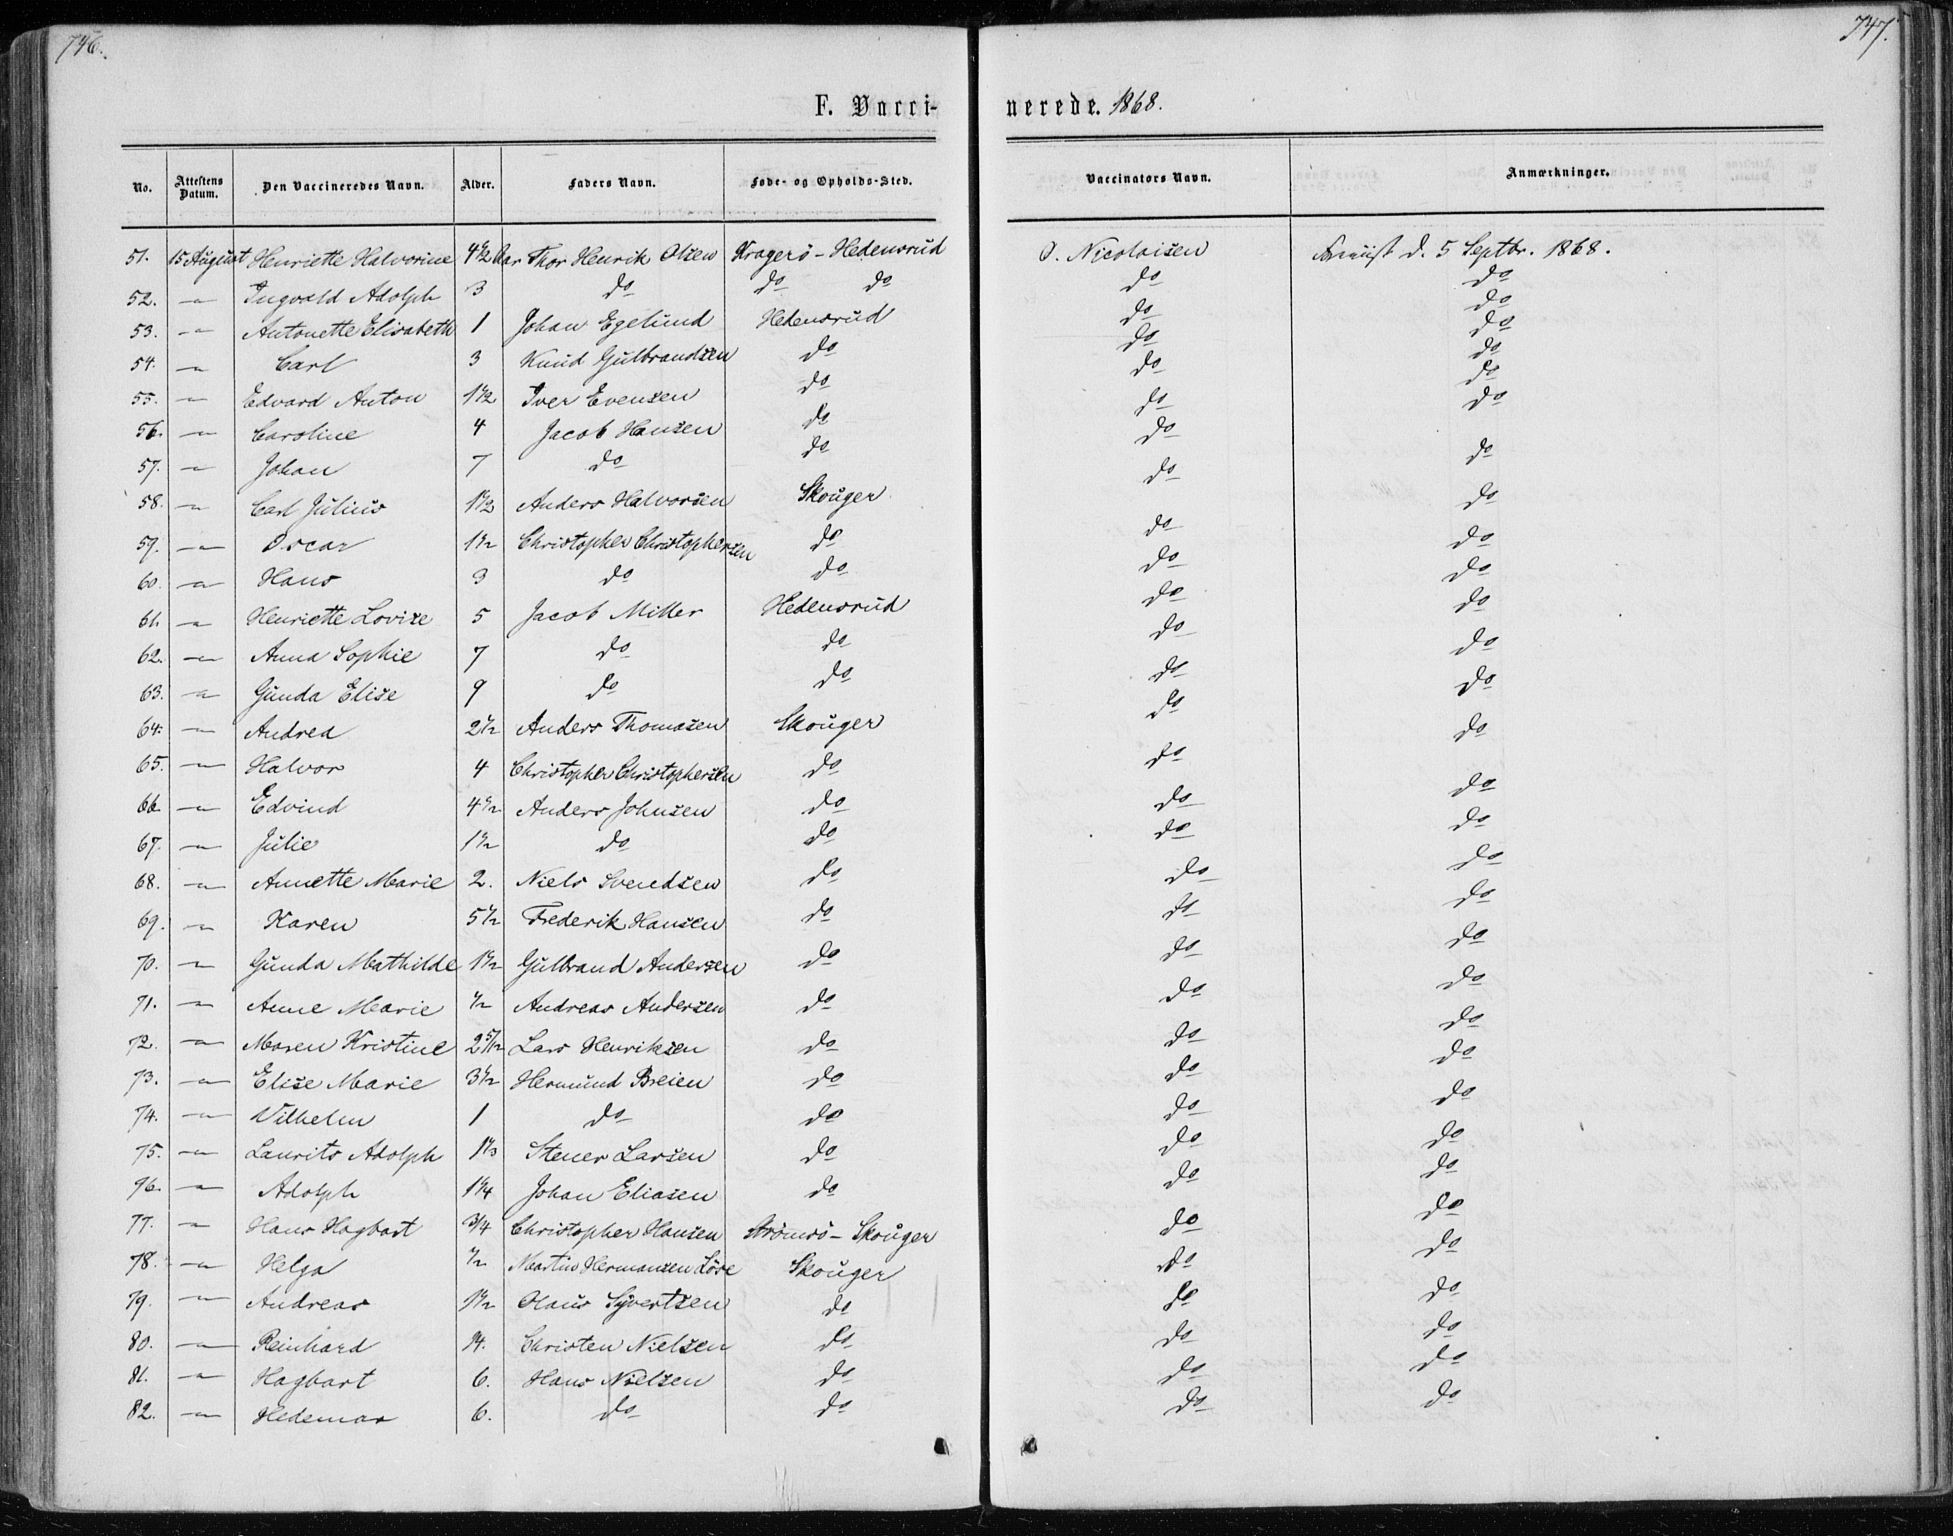 746.
747.
F. Vacci-
nerede. 1868.
No. Attestens Datum. Den Vaccineredes Navn. Alder. Faders Navn. Føde- og Opholds-Sted. Vaccinators Navn. Anmærkninger.
51. 15 August Henriette Halvorine 4 1/2 Aar Thor Henrik Olsen Kragerö - Hedensrud O. Nicolaisen d. 5 Septbr. 1868.
52. — Ingvald Adolph 3 do do do do do
53. — Antonette Elisabeth 1 Johan Egelund Hedensrud do do
54. — Carl 3 Knud Gulbrandsen do do do
55. — Edvard Anton 1 1/2 Iver Evensen do do do
56. — Caroline 4 Jacob Hansen do do do
57. — Johan 7 do do do do
58. — Carl Julius 1 1/2 Anders Halvorsen Skouger do do
59. — Oscar 1 1/2 Christopher Christophersen do do do
60. — Hans 3 do do do do
61. — Henriette Lovise 5 Jacob Miller Hedensrud do do
62. — Anna Sophie 7 do do do do
63. — Gunda Elise 9 do do do do
64. — Andrea 2 1/2 Anders Thomasen Skouger do do
65. — Halvor 4 Christopher Christophersen do do do
66. — Edvind 4 1/2 Anders Johnsen do do do
67. — Julie 1 1/2 do do do do
68. — Annette Marie 2. Niels Svendsen do do do
69. — Karen 5 1/2 Frederik Hansen do do do
70. — Gunda Mathilde 1 1/2 Gulbrand Andersen do do do
71. — Anne Marie 1/2 Andreas Andersen do do do
72. — Maren Kristine 2 5/12 Lars Henriksen do do do
73. — Elise Marie 3 1/2 Hermund Breien do do do
74. — Vilhelm 1 do do do do
75. — Laurits Adolph 1 1/3 Stener Larsen do do do
76. — Adolph 1 1/4 Johan Eliasen do do do
77. — Hans Hagbart 3/4 Christopher Hansen Strömsö - Skouger do do
78. — Helga 1/2 Martin Hermansen Löve Skouger do do
79. — Andreas 1 1/2 Olaus Syvertsen do do do
80. — Reinhard 14. Christen Nielsen do do do
81. — Hagbart 6. Hans Nielsen do do do
82. — Hedemar 6. do do do do